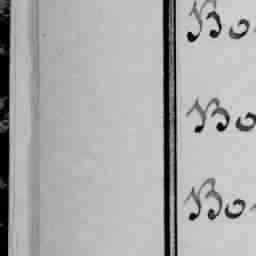 Bo
Bo
Bo